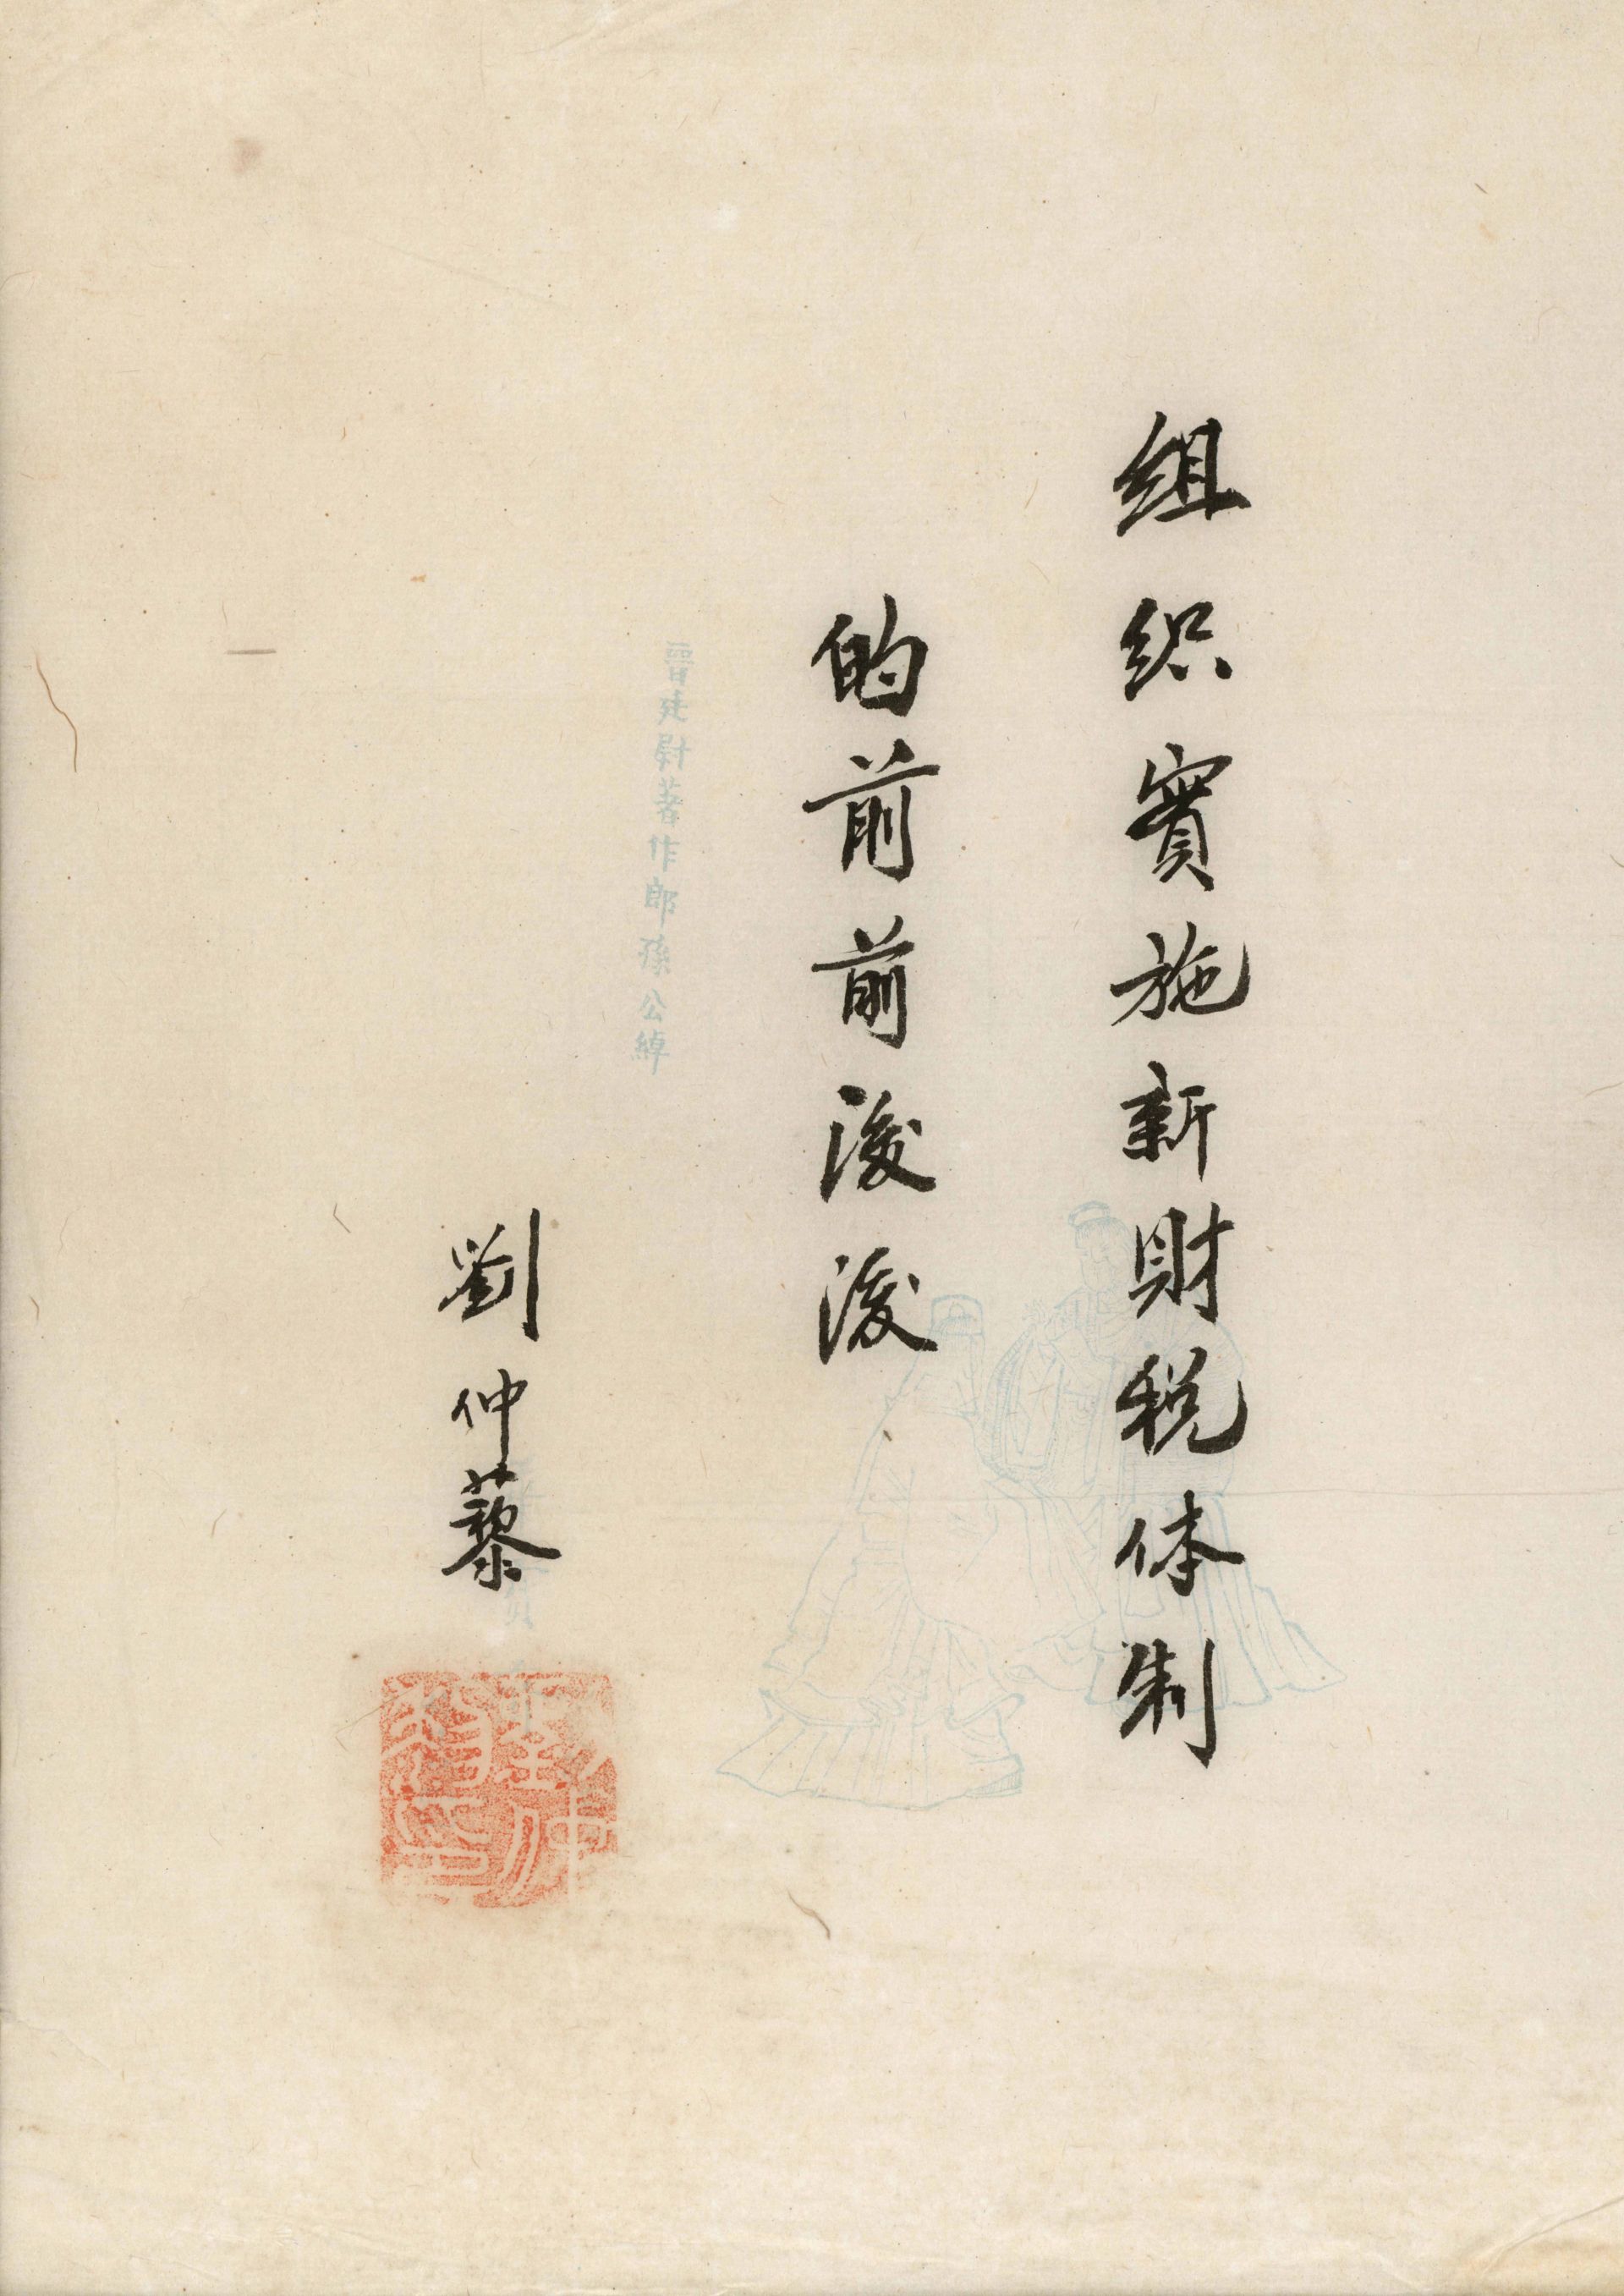 组织實施新財税体制
的前前後後
劉仲藜
晉廷尉著作郎孫公綽